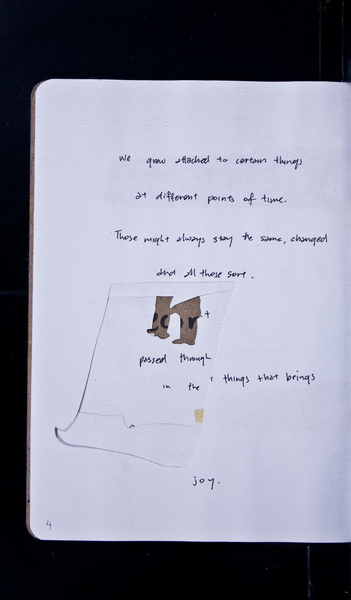 We grow attached to certain things
at different points of time.
Those might always stay the same, changed
and all those sort.
passed through
in the things that brings
joy.
4